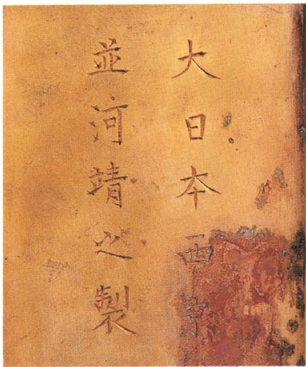 大日本西京
並河靖之製